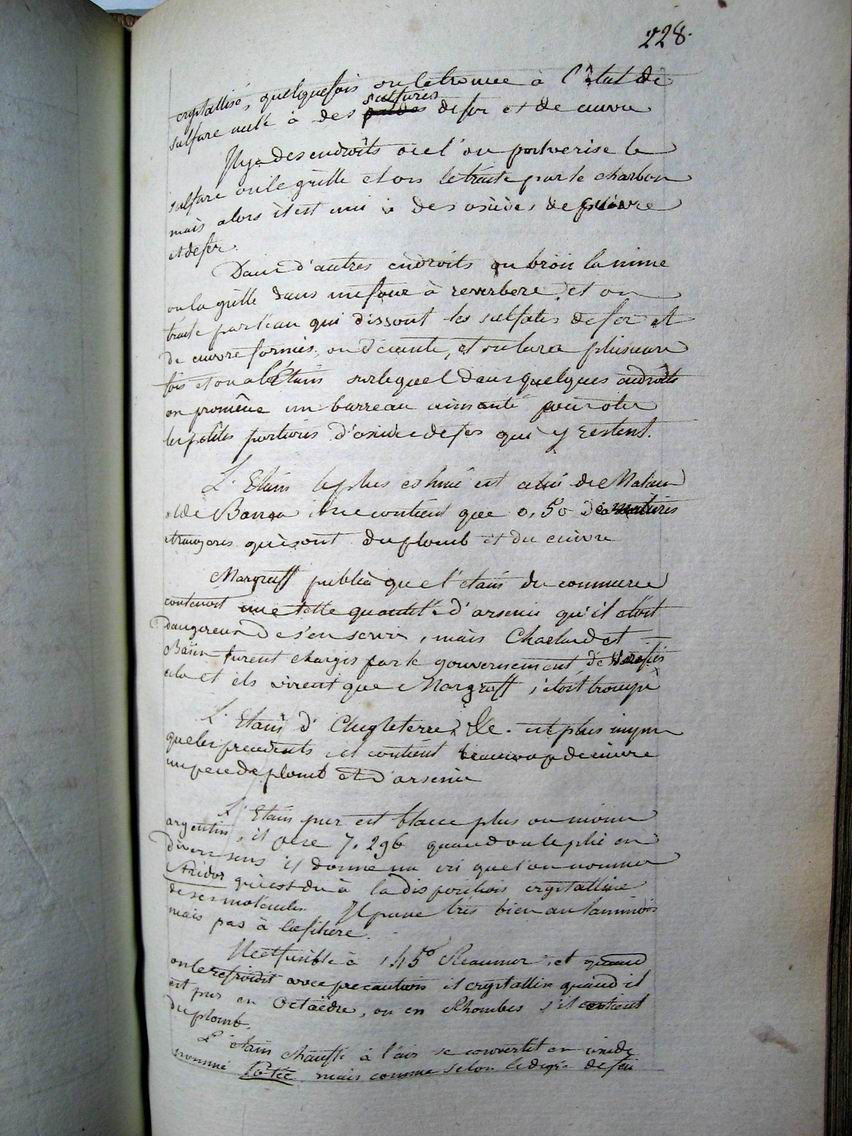 228.
crystallisé, quelquefois on le trouve à l'état de
sulfure mêlé à des sulfures de fer et de cuivre
Il y a des endroits où l'on pulverise le
sulfure on le grille et on le traite par le charbon
mais alors il est uni à des oxides de cuivre
et de fer.
Dans d'autres endroits on broie la mine
on la grille dans un four à reverbere, et on
traite par l'eau qui dissout les sulfates de fer et
de cuivre formés, on décante, et on lave plusieurs
fois et on a l'étain sur lequel dans quelques endroits
on promène un barreau aimanté pour oter
les petites portions d'oxide de fer qui y restent.
L'Etain le plus estimé est celui de Malaca
et de Banca il ne contient que 0,50 de matieres
etrangeres qui sont du plomb et du cuivre
Margraff publia que l'étain du commerce
contenoit une telle quantité d'arsenic qu'il etoit
dangereux de s'en servir, mais Charlard et
Baïen furent chargés par le gouvernement de verifier
cela et ils virent que Margraff s'etoit trompé
L'Etain d'Angleterre &c. est plus impur
que les precedents et contient beaucoup de cuivre
un peu de plomb et d'arsenic
L'Etain pur est blanc plus ou moins
argentin, il pese 7,296 quand on le plie en
divers sens il donne un cri que l'on nomme
Stridor qui est dû à la disposition crystalline
de ses molecules. Il passe très bien au laminoir
mais pas à la filiere.
Il est fusible à 145° Reaumur, et quand
on le refroidit avec precautions il crystallise quand il
est pur en Octaëdre, ou en Rhombes s'il contient
du plomb.
L'étain chauffé à l'air se convertit en oxide
nommé Potée mais comme selon le degré de feu